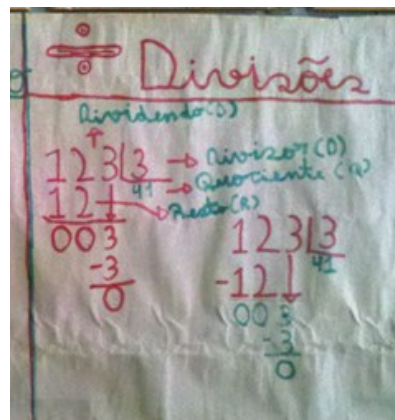 ÷ Divisões
Dividendo(D)
123 3 → Divisor (D)
12 41 → Quociente (Q)
→ Resto(R)
003
-3
0
123 3
-12 41
003
-3
0